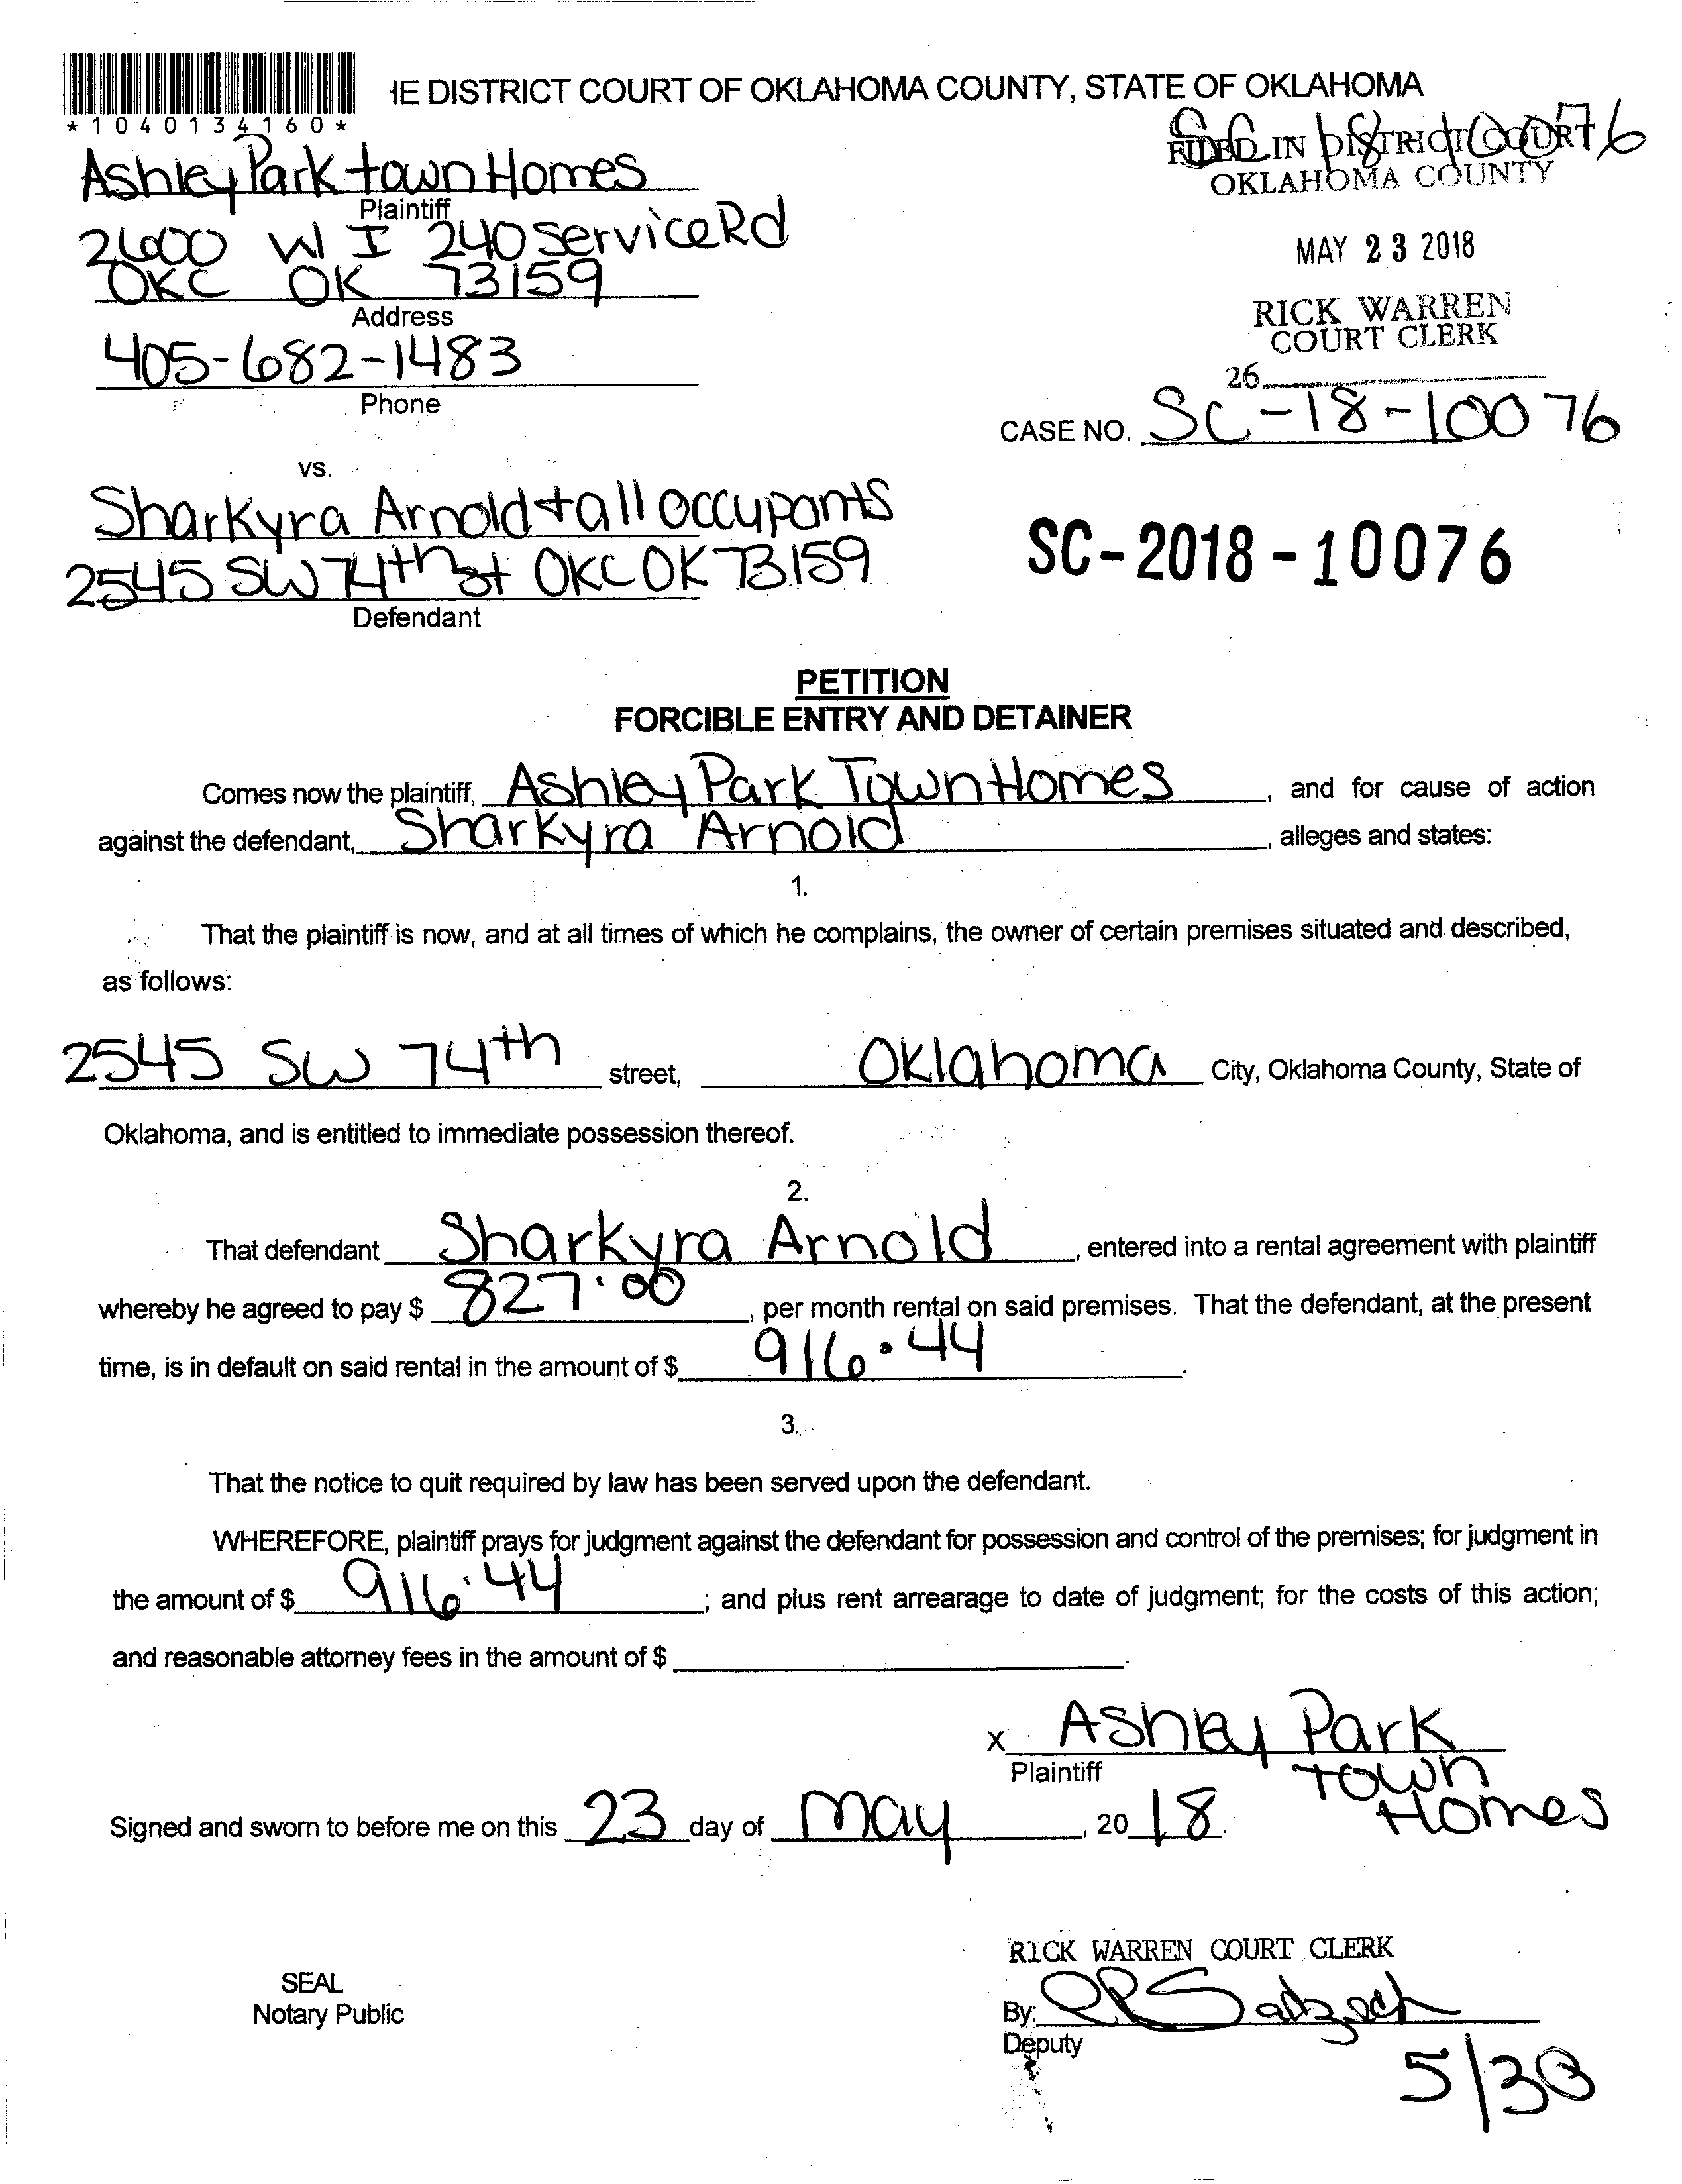 *1040134160*
IE DISTRICT COURT OF OKLAHOMA COUNTY, STATE OF OKLAHOMA
SC 18 10076
FILED IN DISTRICT COURT
OKLAHOMA COUNTY
Ashley Park town Homes
Plaintiff
2600 W I 240 service Rd
OKC OK 73159
Address
MAY 23 2018
RICK WARREN
COURT CLERK
405-682-1483
Phone
26
CASE NO. SC-18-10076
vs.
Sharkyra Arnold + all occupants
2545 SW 74th st OKC OK 73159
Defendant
SC-2018-10076
PETITION
FORCIBLE ENTRY AND DETAINER
Comes now the plaintiff, Ashley Park Town Homes, and for cause of action
against the defendant, Sharkyra Arnold, alleges and states:
1.
That the plaintiff is now, and at all times of which he complains, the owner of certain premises situated and described,
as follows:
2545 SW 74th street, Oklahoma City, Oklahoma County, State of
Oklahoma, and is entitled to immediate possession thereof.
2.
That defendant Sharkyra Arnold, entered into a rental agreement with plaintiff
whereby he agreed to pay $ 827.00, per month rental on said premises. That the defendant, at the present
time, is in default on said rental in the amount of $ 916.44.
3.
That the notice to quit required by law has been served upon the defendant.
WHEREFORE, plaintiff prays for judgment against the defendant for possession and control of the premises; for judgment in
the amount of $ 916.44; and plus rent arrearage to date of judgment; for the costs of this action;
and reasonable attorney fees in the amount of $ .
X Ashley Park
Plaintiff Town
Homes
Signed and sworn to before me on this 23 day of May, 2018.
RICK WARREN COURT CLERK
SEAL
Notary Public
By:
Deputy
5/30